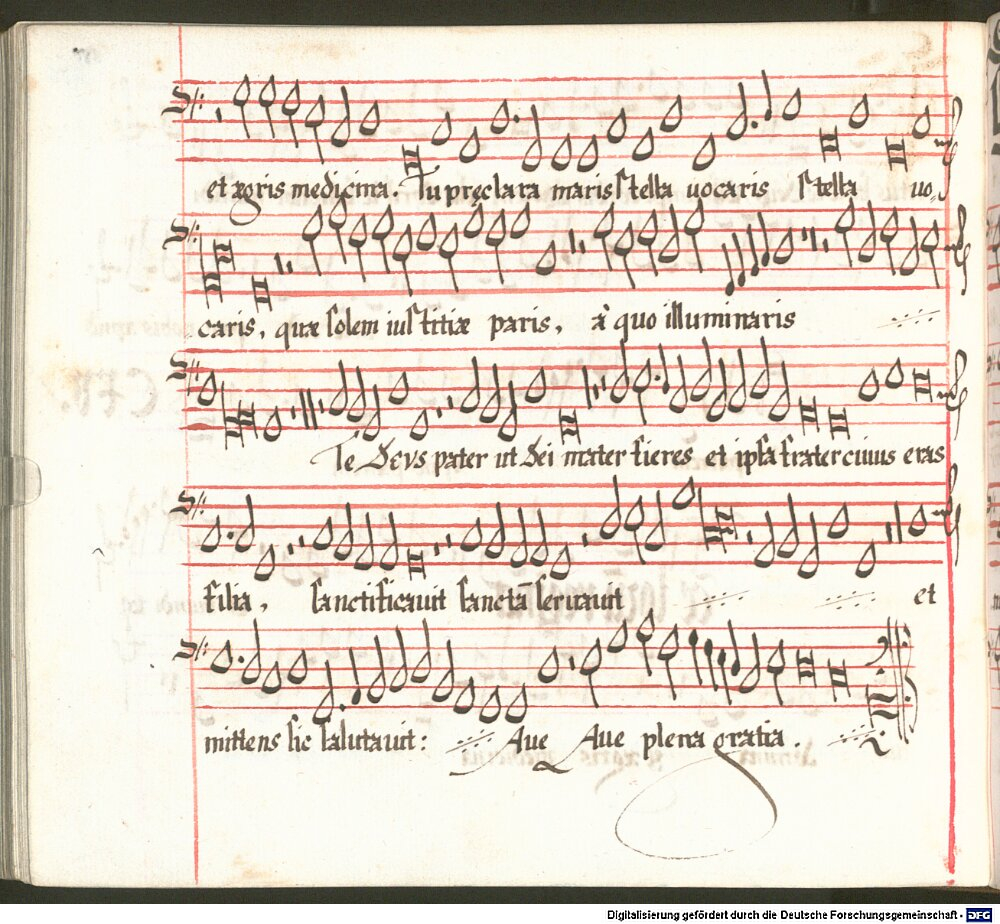 et ægris medicina. Tu pręclara maris stella uocaris stella uo,,
caris, quæ solem iustitiæ paris, à quo illuminaris
Te Deus pater ut Dei mater fieres et ipsa frater cuius eras
filia, sanctificauit sanctā seruauit et
mittens sic salutauit: Aue Aue plena gratia.
Digitalisierung gefördert durch die Deutsche Forschungsgemeinschaft - DFG